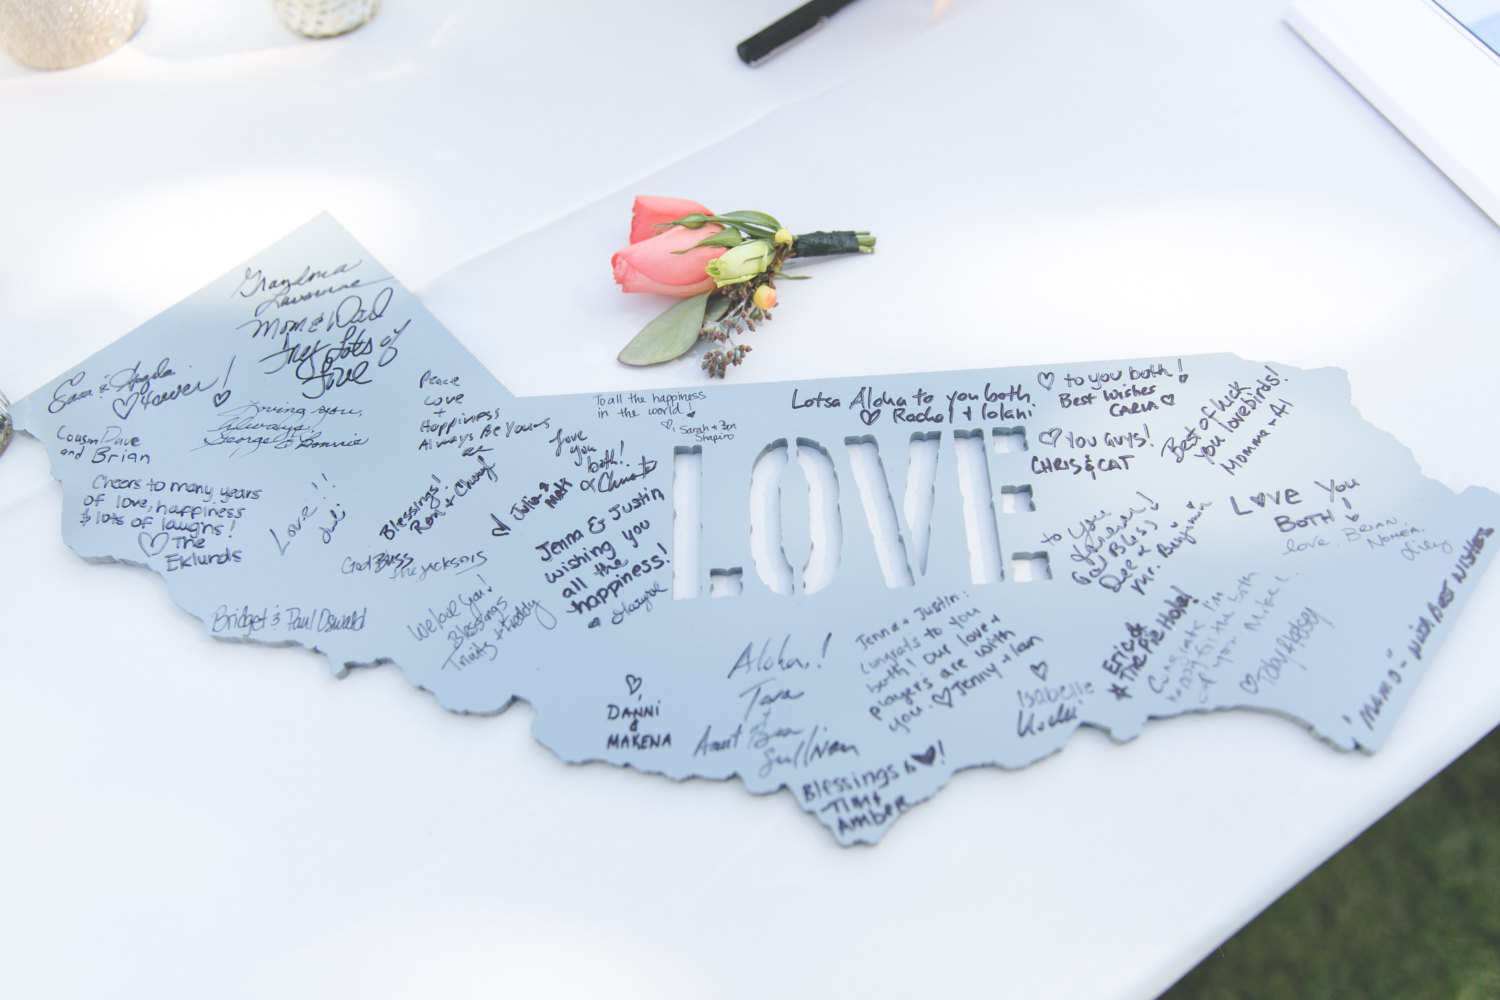 Grandma
Mom & Dad
Lots of
love
& Angela
4ever!
Loving you,
always!
George & Bonnie
Cousin Dave
and Brian
Cheers to many years
of love, happiness
& lots of laughs!
The
Eklunds
Love!!
Juli
Peace
Love
+
Happiness
Always Be Yours
Blessings!
Ron + Cheryl
God Bless
the Jacksons
Bridget & Paul Oswald
We love you!
Blessings
Trinity + Freddy
Love
you
both!
Julia &
Matt
Jenna & Justin
wishing you
all the
happiness!
To all the happiness
in the world!
Sarah + Ben
Shapiro
LOVE
Lotsa Aloha to you both.
Rachel + Iolani
to you both!
Best Wishes
CARLA
YOU GUYS!
CHRIS & CAT
Best of luck
you lovebirds!
Momma + Al
LOVE YOU
BOTH!
love, BRIAN,
to you
God Bliss
Dee &
Mr. Benjamin
DANNI
&
MAKENA
Aloha!
Tara
+
Aunt Bea
Sullivan
Blessings &
TIM &
AMBER
Jenna + Justin:
Congrats to you
both! Our love +
prayers are with
you. Jenny + Ian
Isabelle
Eric &
The Pie Hole!
Congrats I'm
so happy for the both
of you. Mike
Toby & Kelsey
"MAMO" - WITH BEST WISHES